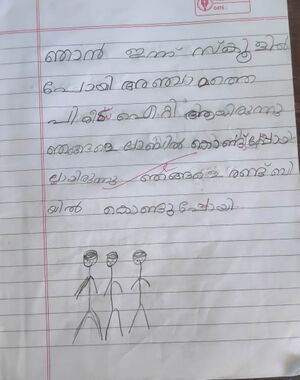 ഞാൻ ഇന്ന് സ്കൂളിൽ
പോയി അഞ്ചാമത്തെ
പിരീഡ് ഐ റ്റി ആയിരുന്നു
ഞങ്ങളെ ലാബിൽ കൊണ്ടുപ്പോയി
ലായിരുന്നു ഞങ്ങളെ രണ്ട് ബി
യിൽ കൊണ്ടുപോയി
DATE: